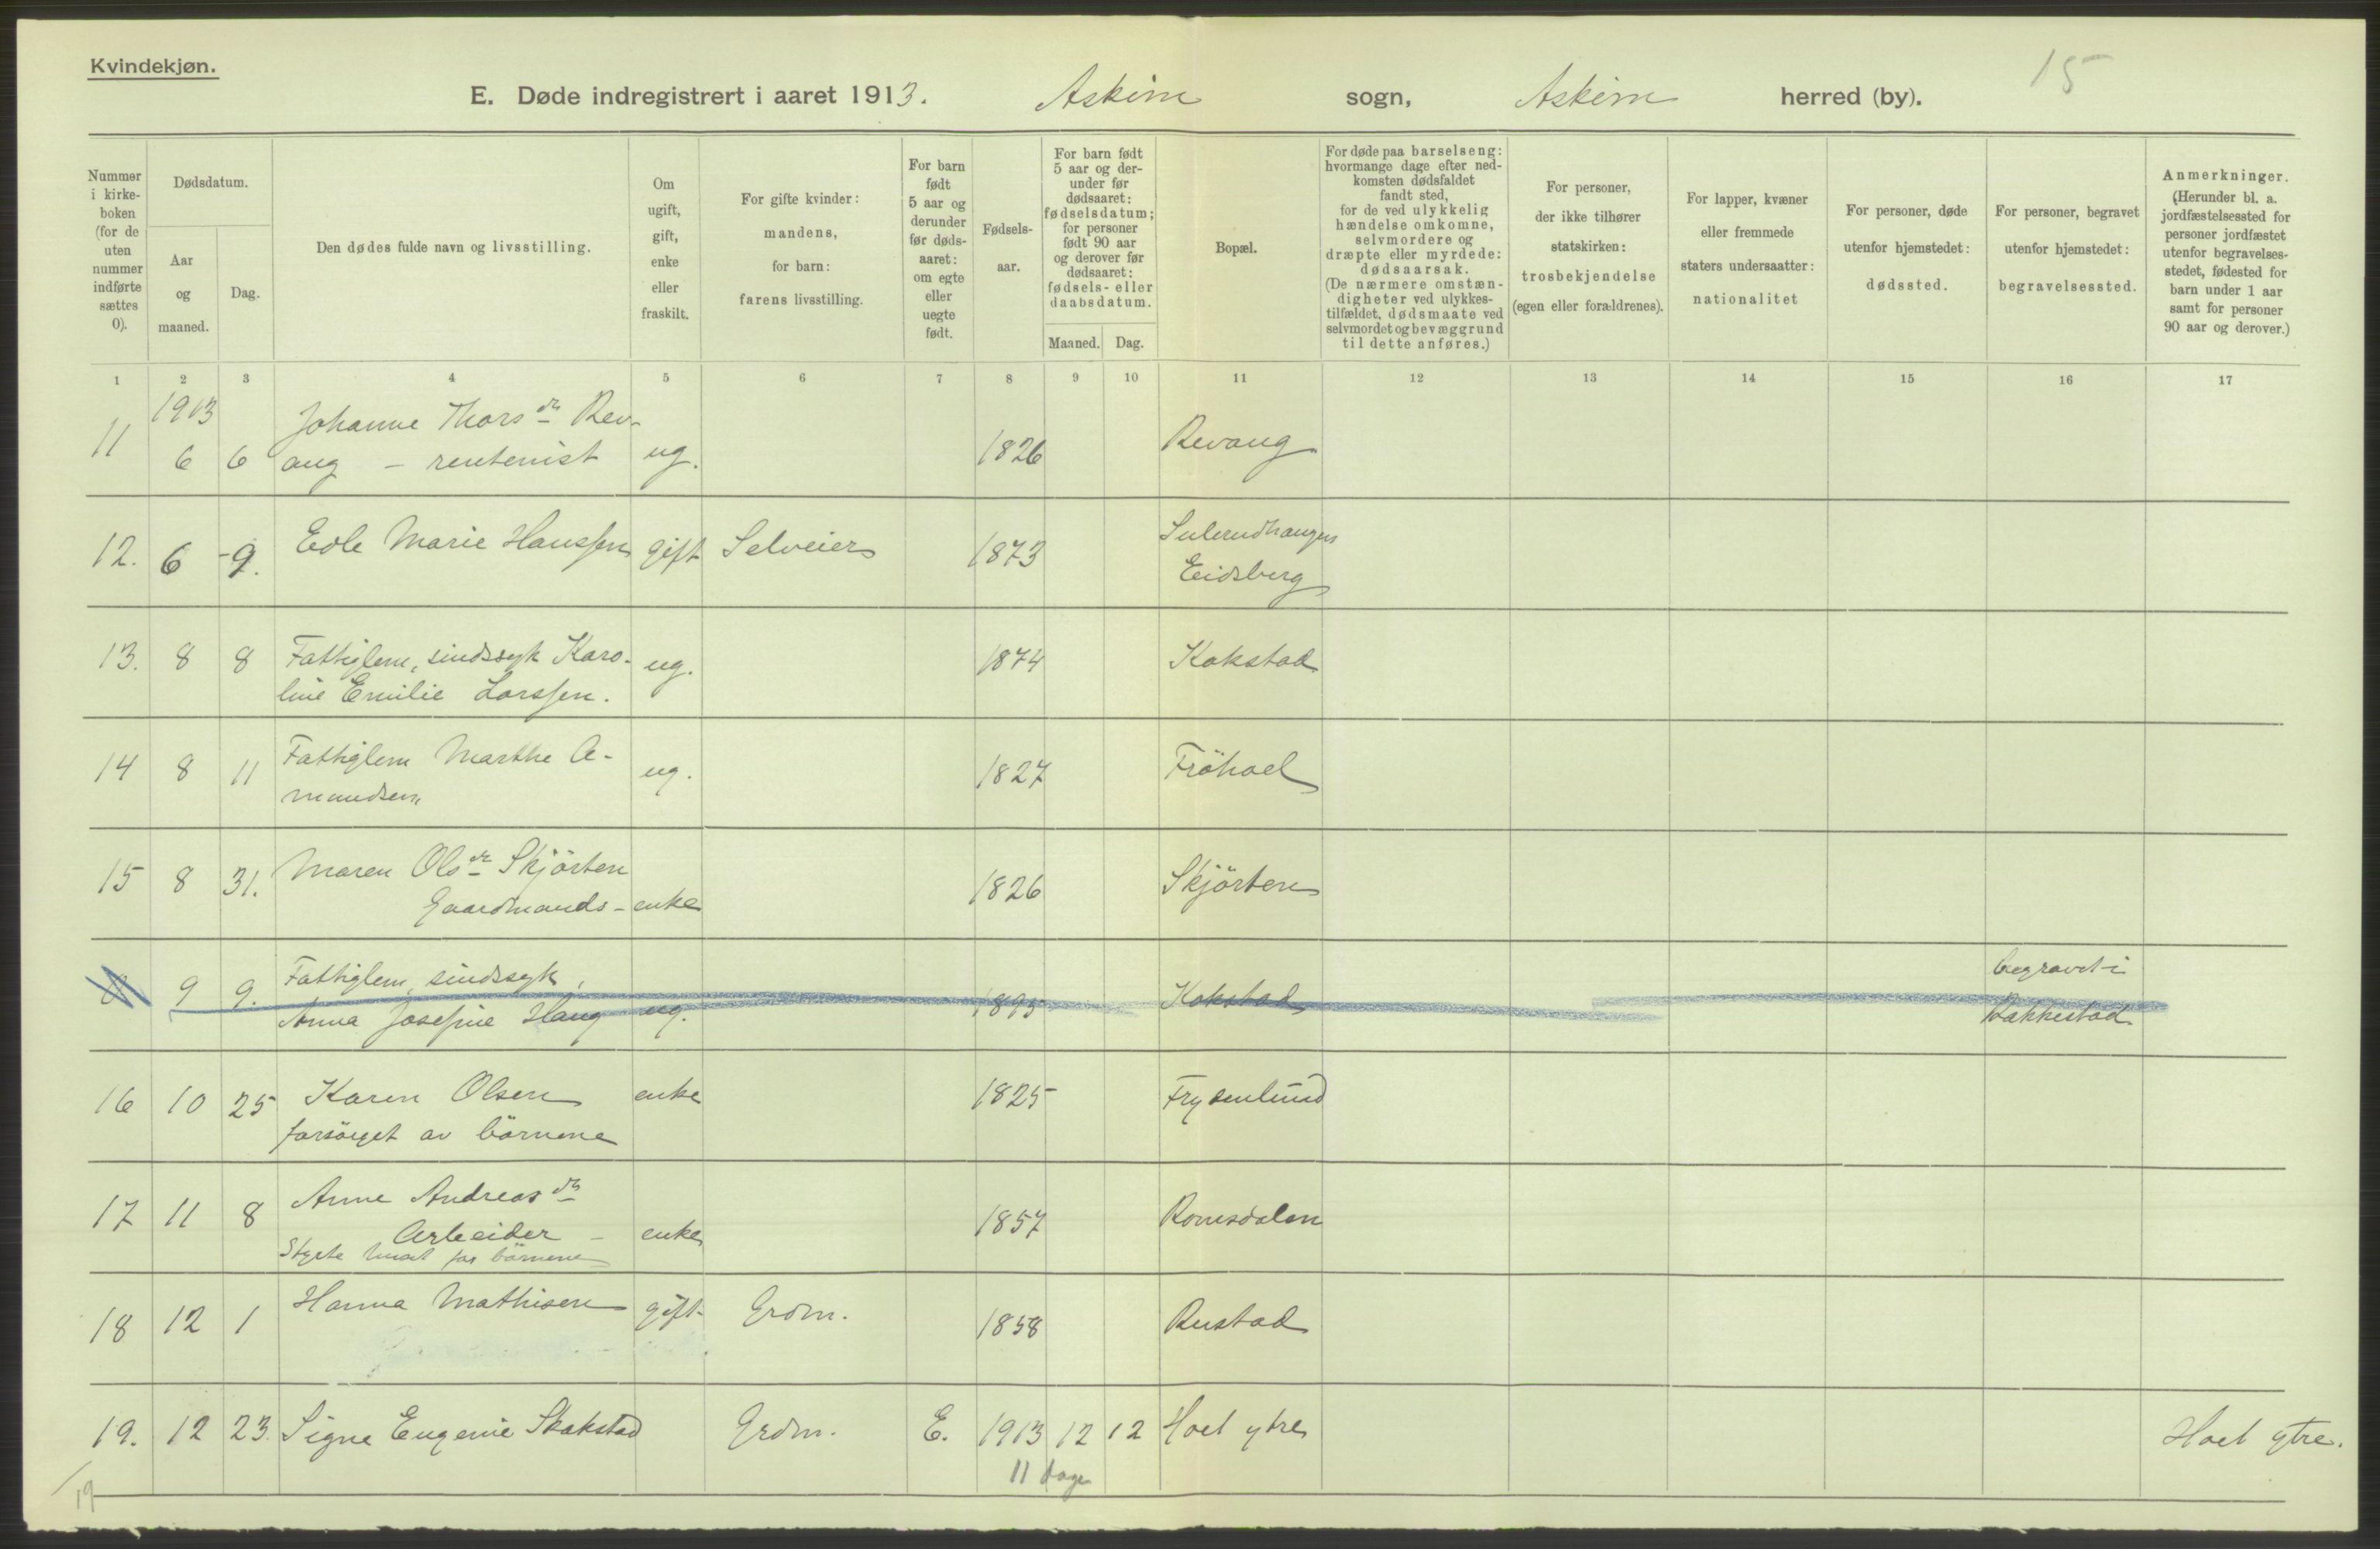 Kvindekjøn.
15
E. Døde indregistrert i aaret 1913. Askim sogn, Askim herred (by).
Nummer i kirke-boken (for de uten nummer indførte sættes 0).
Dødsdatum.
Aar og maaned.
Dag.
Den dødes fulde navn og livsstilling.
Om ugift, gift, enke eller fraskilt.
For gifte kvinder: mandens, for barn: farens livsstilling.
For barn født 5 aar og derunder før døds-aaret: om egte eller uegte født.
Fødsels-aar.
For barn født 5 aar og der-under før dødsaaret: fødselsdatum; for personer født 90 aar og derover før dødsaaret: fødsels- eller daabsdatum.
Maaned. Dag.
Bopæl.
For døde paa barselseng: hvormange dage efter ned-komsten dødsfaldet fandt sted, for de ved ulykkelig hændelse omkomne, selvmordere og dræpte eller myrdede: dødsaarsak. (De nærmere omstæn-digheter ved ulykkes-tilfældet, dødsmaate ved selvmordet og bevæggrund til dette anføres.)
For personer, der ikke tilhører statskirken: trosbekjendelse (egen eller forældrenes).
For lapper, kvæner eller fremmede staters undersaatter: nationalitet
For personer, døde utenfor hjemstedet: dødssted.
For personer, begravet utenfor hjemstedet: begravelsessted.
Anmerkninger. (Herunder bl. a. jordfæstelsessted for personer jordfæstet utenfor begravelses-stedet, fødested for barn under 1 aar samt for personer 90 aar og derover.)
1 2 3 4 5 6 7 8 9 10 11 12 13 14 15 16 17
1913
11 6 6 Johanne Thorsdr Rev-
ang – rentenist ug. 1826 Revaug
12. 6 -9. Edle Marie Hanssen gift Selveier 1873 Sulerudhaugen
Eidsberg
13. 8 8 Fattiglem, sindssyk Karo- ug. 1874 Kakstad
line Emilie Larssen.
14 8 11 Fattiglem Marthe A- ug. 1827 Fröhael
mundsen
15 8 31. Maren Olsdr Skjörten 1826 Skjörten
Gaardmands- enke
9 9. Fattiglem, sindssyk, begravet i
Anna Josefine Haug ug. 1895 Kakstad Rakkestad
16 10 25 Karen Olsen enke 1825 Frydenlund
forsörget av börnene
17 11 8 Anne Andreasdr
Arbeider – enke 1857 Romsdalen
Styrte huset for börnene
18 12 1 Hanna Mathisen gift Grdm. 1858 Rustad
19. 12 23. Signe Eugenie Skakstad Grdm. E. 1913 12 12 Hoel ytre Hoel ytre.
11 dage
19